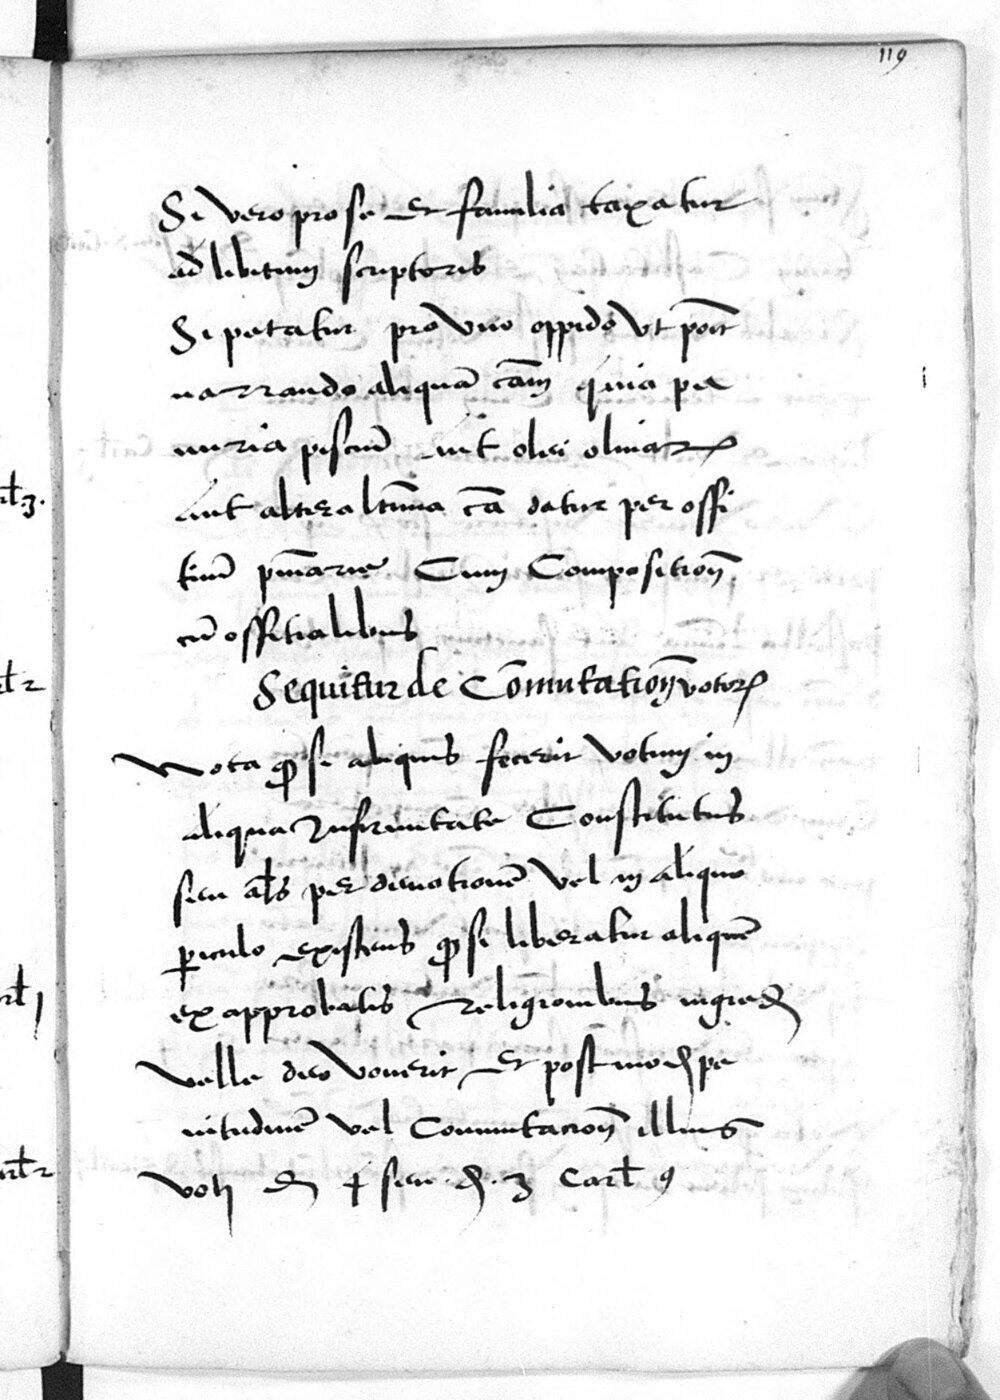 119
Si vero pro se Et familia taxatur
ad libitum scriptoris
Si petatur pro vno oppido vt poit
narrando aliquā cām quia pe
nuria pisciū Aut olei oliuarꝝ
Aut altera ltīma cā datur per offi
tiū pniarie Cum Composition̄
cū offitialibus
Sequitur de Cōmutation̄ votorꝝ
Nota ꝙ si aliquis fecerit votum in
aliqua Infirmitate Constitutus
seu als per deuotionē vel in aliquo
ꝑiculo existens ꝙ si liberatur aliquē
ex approbatis Religionibus ingred
velle deo vouerit Et post mod pe
nitudinē vel Commutacion̄ illius
voti
seu d. 3 Carl 9
rl 3.
rl 2
rl 1
arl 2